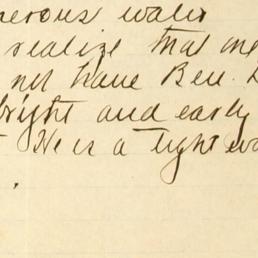 water
realize that me
not have Ben.
bright and early
He is a light wa